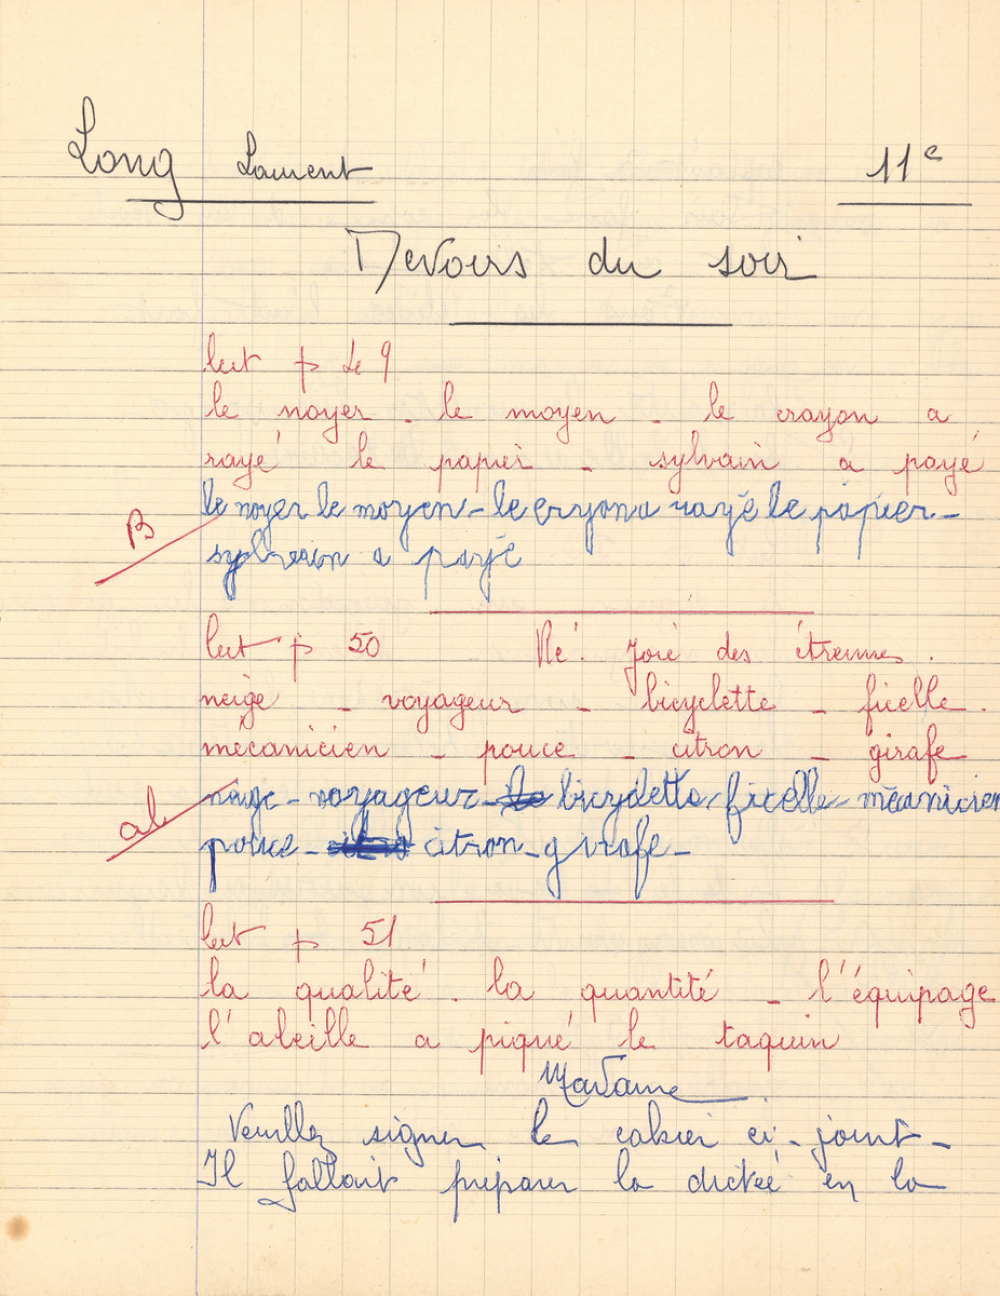 Long Laurent 11e
Devoirs du soir
lect p 49
le noyer - le moyen - le crayon a
rayé le papier - sylvain a payé
le noyer le moyen - le cryon a rayé le papier -
B
sylvain a payé
lect p 50 Ré. Joie des étrennes.
neige - voyageur - bicyclette - ficelle -
mécanicien - pouce - citron - girafe
neige - voyageur - bicyclette - ficelle - mécanicien
al
pouce - citron - girafe -
lect p 51
la qualité - la quantité - l'équipage
l'abeille a piqué le taquin
Madame
Veuillez signer le cahier ci-joint -
Il fallait préparer la dictée en la